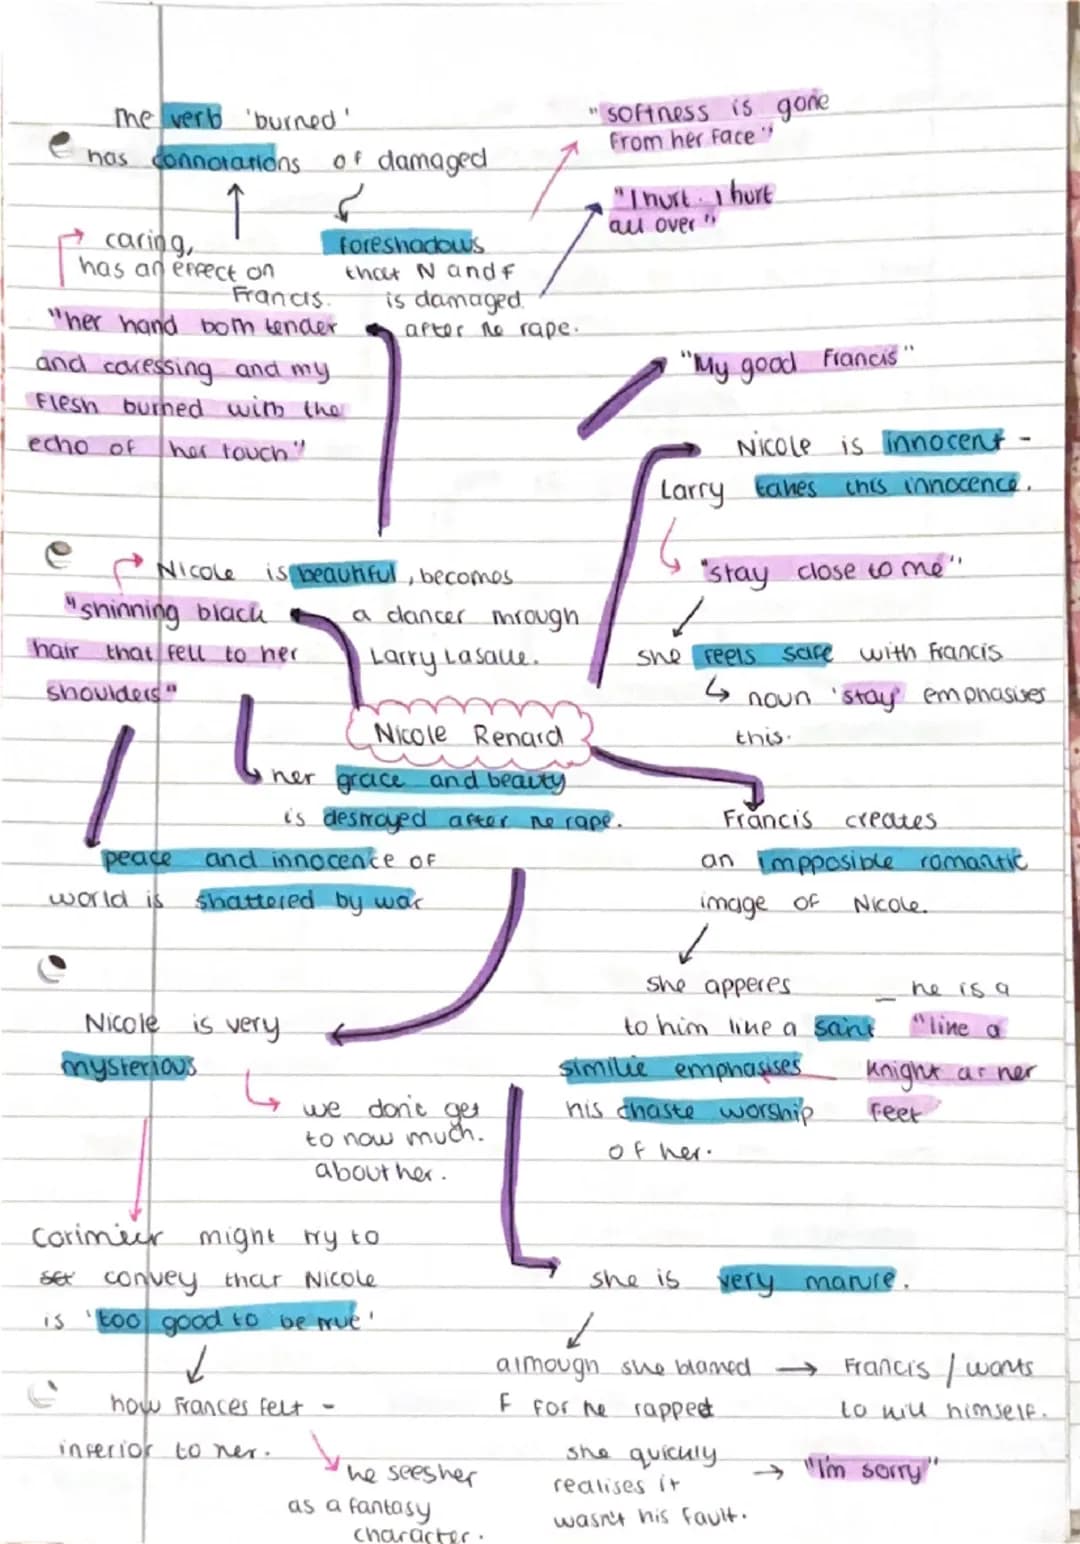 The verb 'burned'
has connotations of damaged
"softness is gone
from her face"
"I hurt. I hurt
all over"
foreshadows
that N and F
is damaged
after the rape.
caring,
has an effect on
Francis.
"her hand both tender
and caressing and my
flesh burned with the
echo of her touch"
"My good Francis"
Nicole is innocent -
Larry takes this innocence.
"stay close to me"
she feels safe with Francis
noun 'stay' emphasises
this.
Nicole is beautiful, becomes
a dancer through
Larry Lasalle.
"shinning black
hair that fell to her
shoulders"
Nicole Renard
her grace and beauty
is destroyed after the rape.
peace and innocence of
world is shattered by war
Francis creates
an impposible romantic
image of Nicole.
she apperes
to him like a saint
similie emphasises
his chaste worship
of her.
he is a
"like a
knight at her
feet
Nicole is very
mysterious
we don't get
to now much.
about her.
Corimeir might try to
set convey that Nicole
is 'too good to be true'
how Frances felt -
inferior to her.
he sees her
as a fantasy
character.
she is very mature.
although she blamed → Francis / wants
F for he rapped
to kill himself.
she quickly
realises it
wasn't his fault.
→ "I'm sorry"